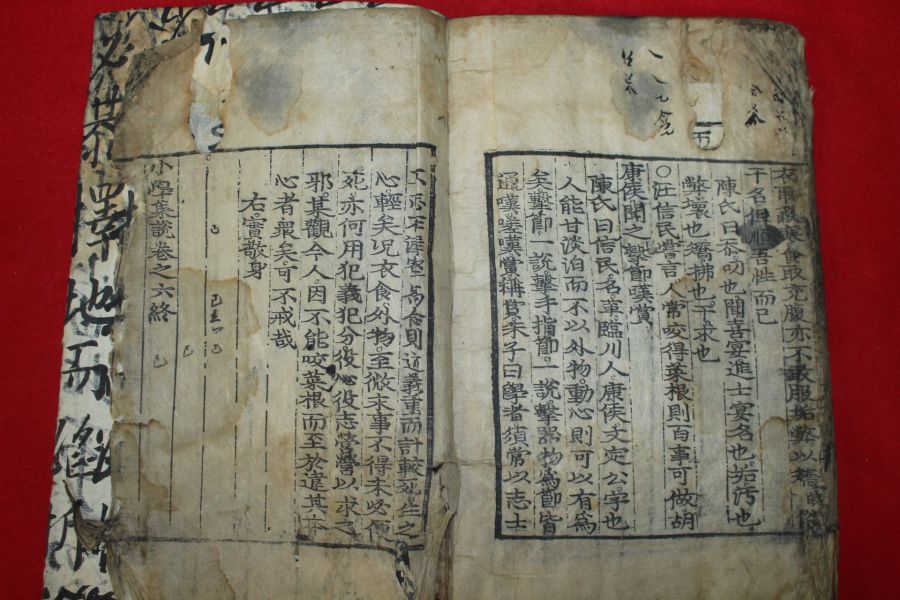 衣取蔽寒食取充腹亦不敢服垢弊以矯俗
干名但順吾性而已
陳氏曰忝叨也聞喜宴進士宴名也垢汚也
弊壞也矯拂也干求也
○汪信民嘗言人常咬得菜根則百事可做胡
康侯聞之擊節嘆賞
陳氏曰信民名革臨川人康侯文定公字也
人能甘淡泊而不以外物動心則可以有爲
矣擊節一說擊手指節一說擊器物爲節皆
嘆賞稱贊朱子曰學者須常以志士
不忘在溝壑爲念則道義重而計較死生之
心輕矣况衣食外物至微末事不得未必便
死亦何用犯義犯分役心役志營營以求之
邪某觀今人因不能咬菜根而至於違其本
心者衆矣可不戒哉
右實敬身
小學集說卷之六終